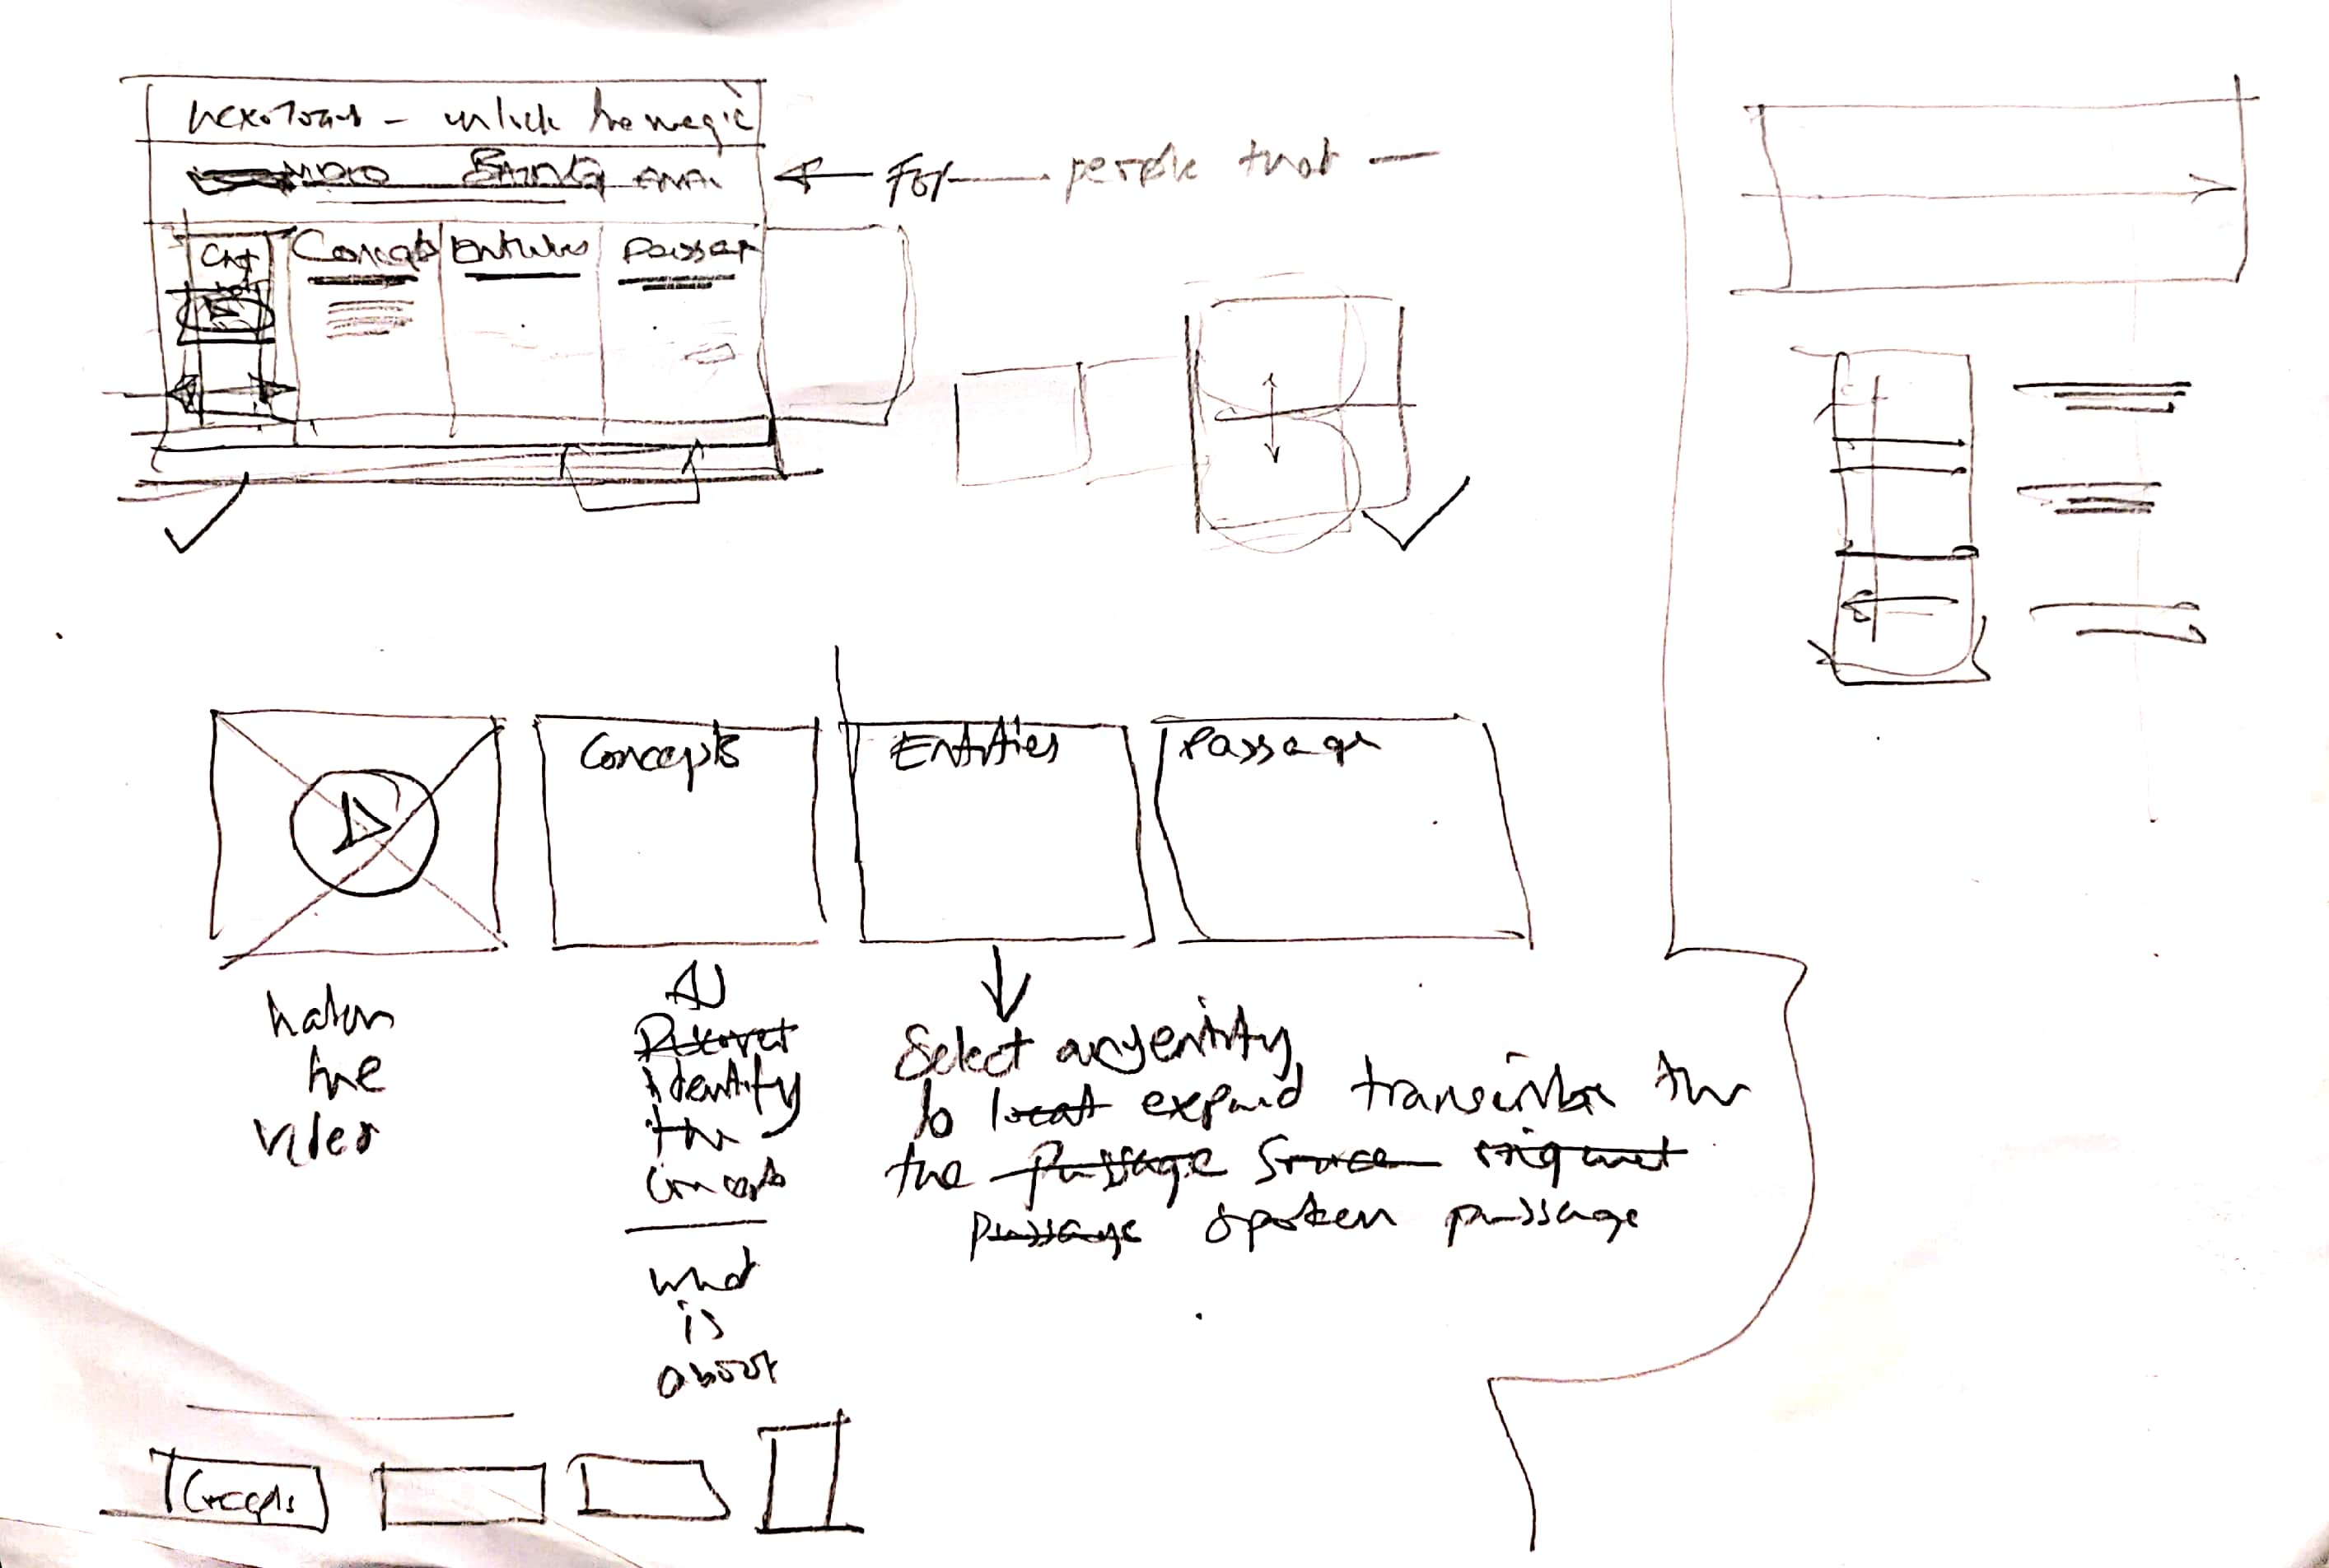 unlock the magic
For people that —
Concepts Entities Passage
Concepts
Entities
Passage
the
video
Discover
identify
the
concepts
what
is
about
Select any entity
to locat expand
the passage source
passage spoken passage
Concepts